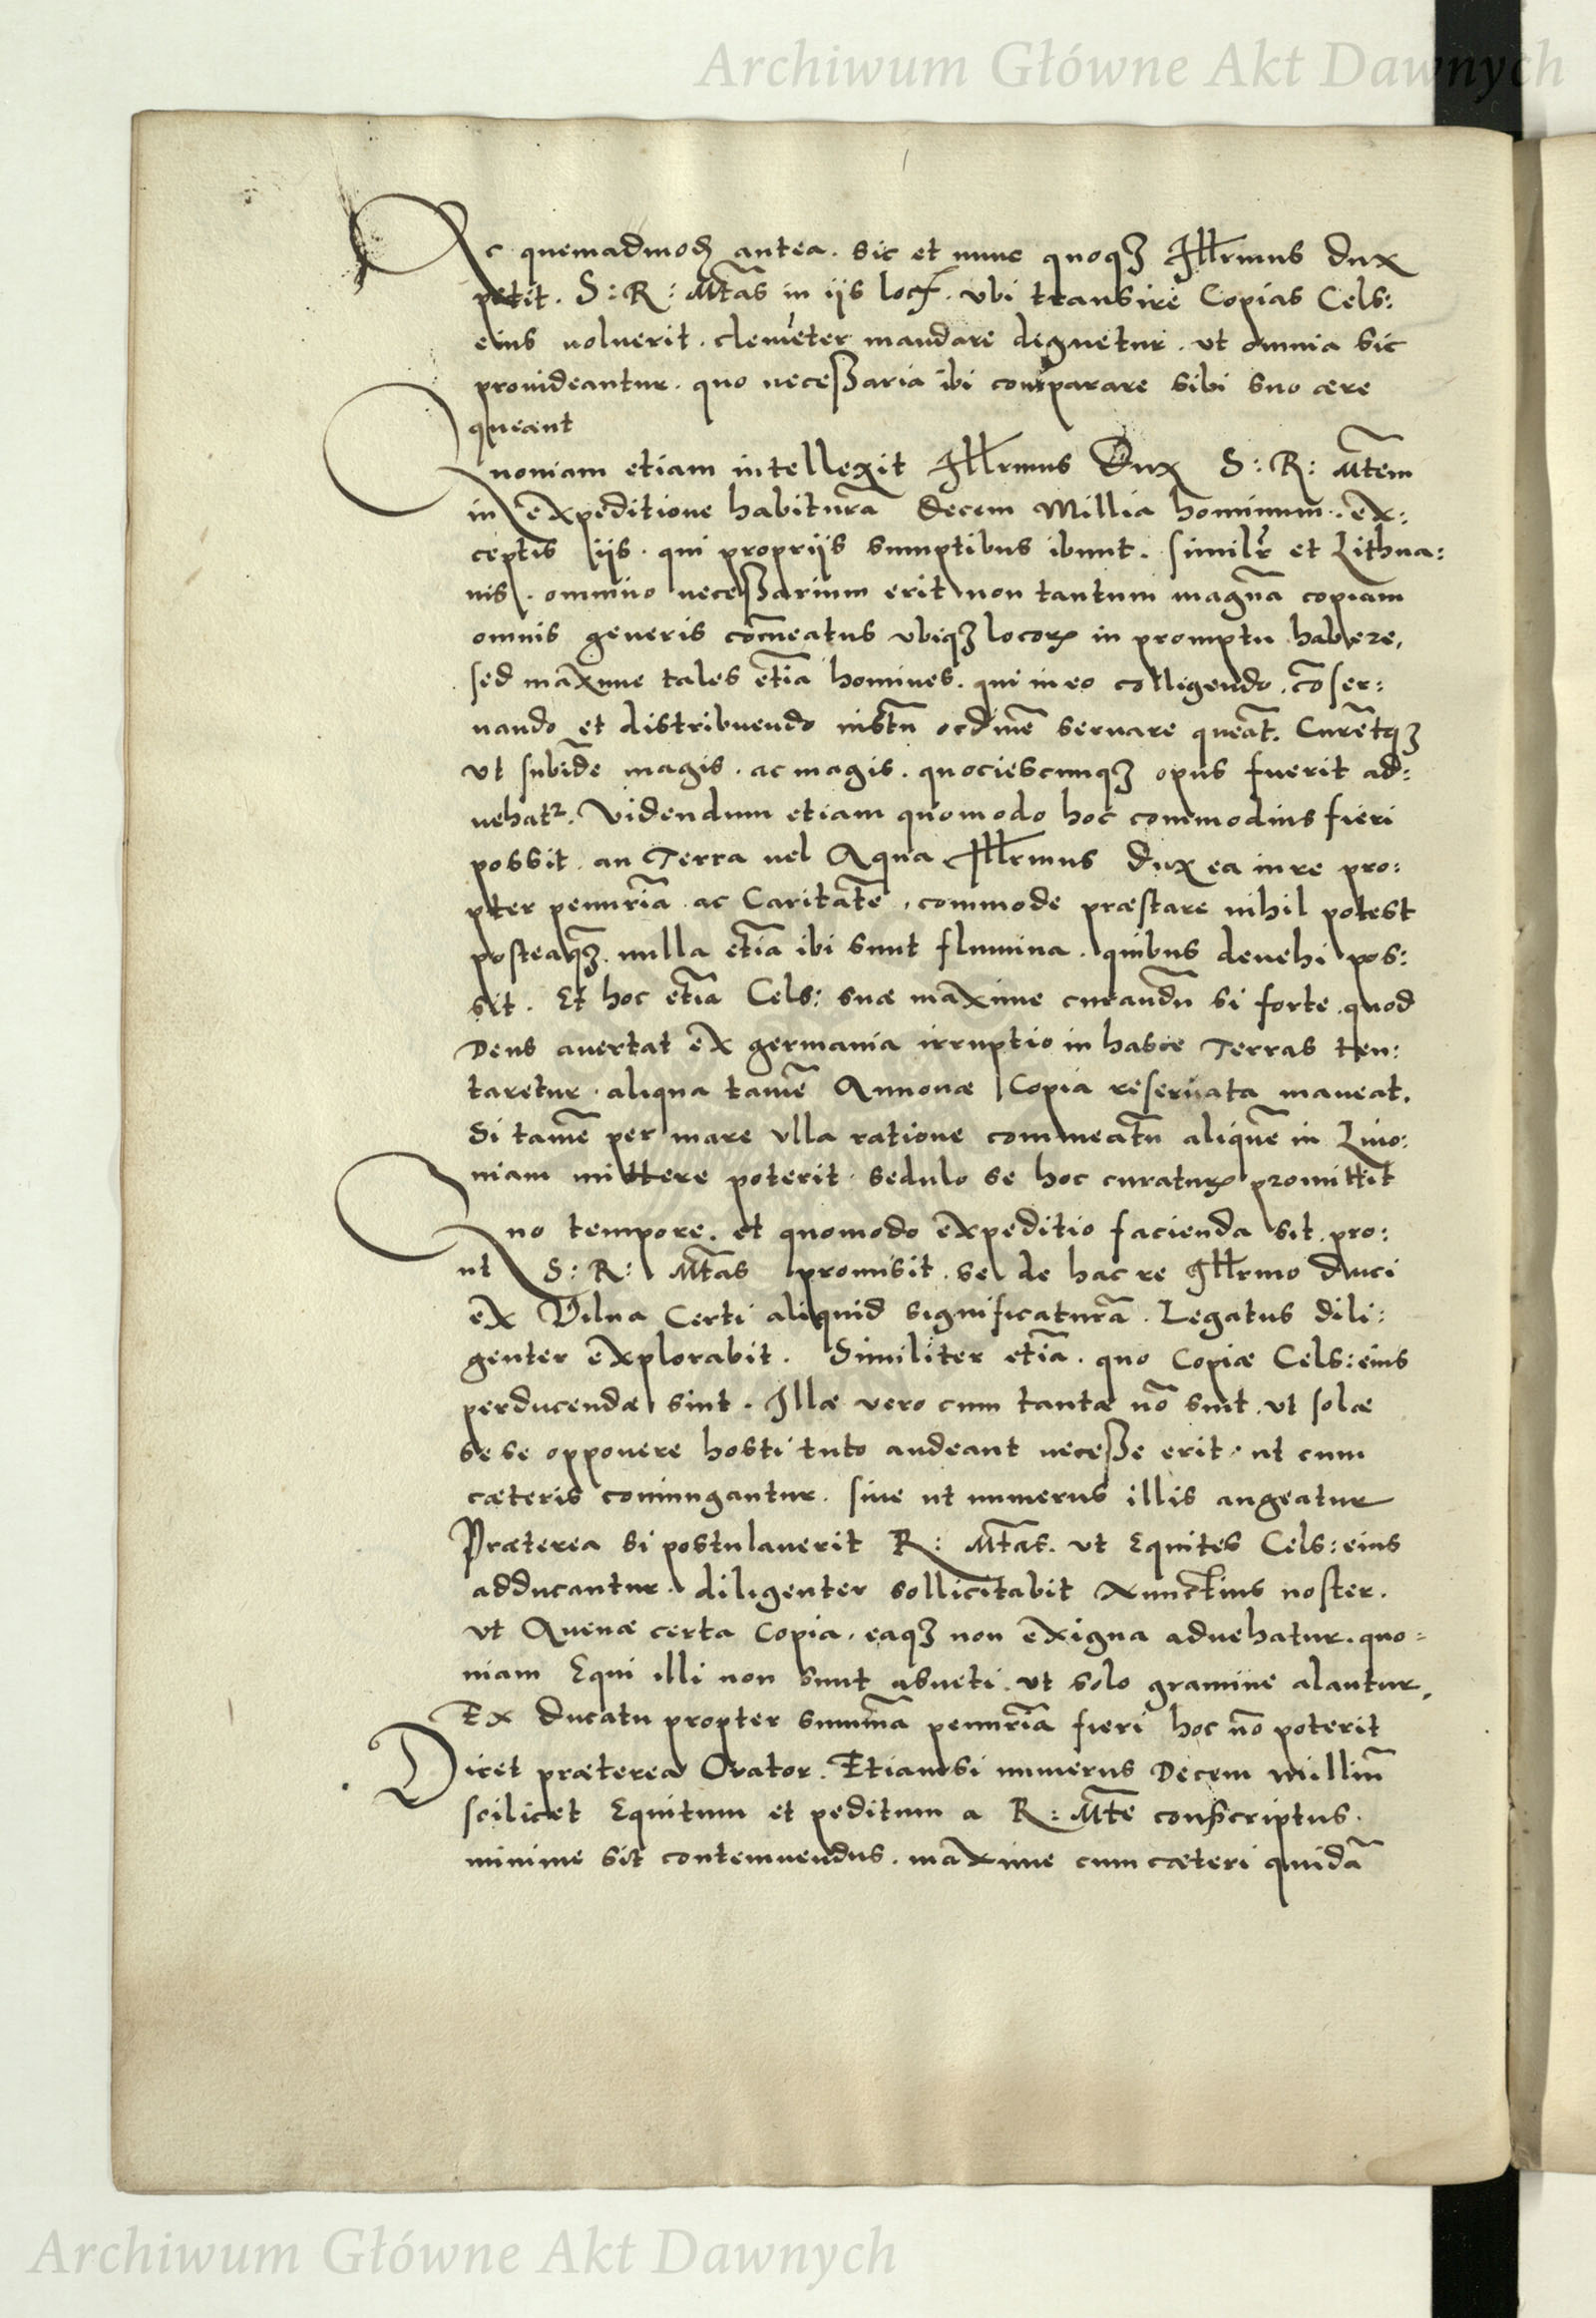 Archiwum Główne Akt Dawnych
Ac quemadmodꝫ antea. sic et nunc quoqꝫ Illrmus Dux
petit. S: R: Mtas in iis locꝭ. vbi transire Copias Cels:
eius uoluerit. clemēter mandare dignetur. vt omnia sic
prouideantur. quo necessaria ibi comparare sibi suo ære
queant
Quoniam etiam intellexit Illrmus Dux S: R: Mtem
in expeditione habiturā Decem Millia hominum. ex:
ceptis iis. qui propriis sumptibus ibunt. similr et Lithua:
nis. omnino necessarium erit non tantum magnā copiam
omnis generis cōmeatus vbiqꝫ locorꝝ in promptu habere,
sed maxime tales etiā homines. qui in eo colligendo. cōser:
uando et distribuendo iustū ordinē seruare queāt. Curētqꝫ
vt subinde magis. ac magis. quociescunqꝫ opus fuerit ad:
uehatr. Videndum etiam quomodo hoc commodius fieri
possit. an Terra uel Aqua Illrmus Dux ea in re pro:
pter penuriā ac Caritatē, commode præstare nihil potest
posteaqꝫ. nulla etiā ibi sunt flumina. quibus deuehi pos:
sit. Et hoc etiā Cels: suæ maxime curandū si forte. quod
Deus auertat ex germania irruptio in hasce Terras ten:
taretur. aliqua tamē Annonæ Copia reseruata maneat.
Si tamē per mare vlla ratione commeatū aliquē in Liuo:
niam mittere poterit. sedulo se hoc curaturꝝ promittit
Quo tempore. et quomodo expeditio facienda sit. pro:
ut S: R: Mtas promisit. se de hac re Illrmo Duci
ex Vilna Certi aliquid significaturā. Legatus dili:
genter explorabit. Similiter etiā. quo Copiæ Cels: eius
perducendæ sint. Illæ vero cum tantæ nō sint. vt solæ
se se opponere hosti tuto audeant necesse erit. ut cum
cæteris coniungantur. siue ut numerus illis augeatur
Præterea si postulauerit R: Mtas. vt Equites Cels: eius
adducantur. diligenter sollicitabit Nunctius noster.
vt Auenæ certa Copia. eaqꝫ non exigua aduehatur. quo=
niam Equi illi non sunt asueti. vt solo gramine alantur,
Ex ducatu propter summā penuriā fieri hoc nō poterit
Dicet præterea Orator. Etiamsi numerus Decem milliū
scilicet Equitum et peditum a R: Mte conscriptus.
minime sit contemnendus. maxime cum cæteri quidā
Archiwum Główne Akt Dawnych